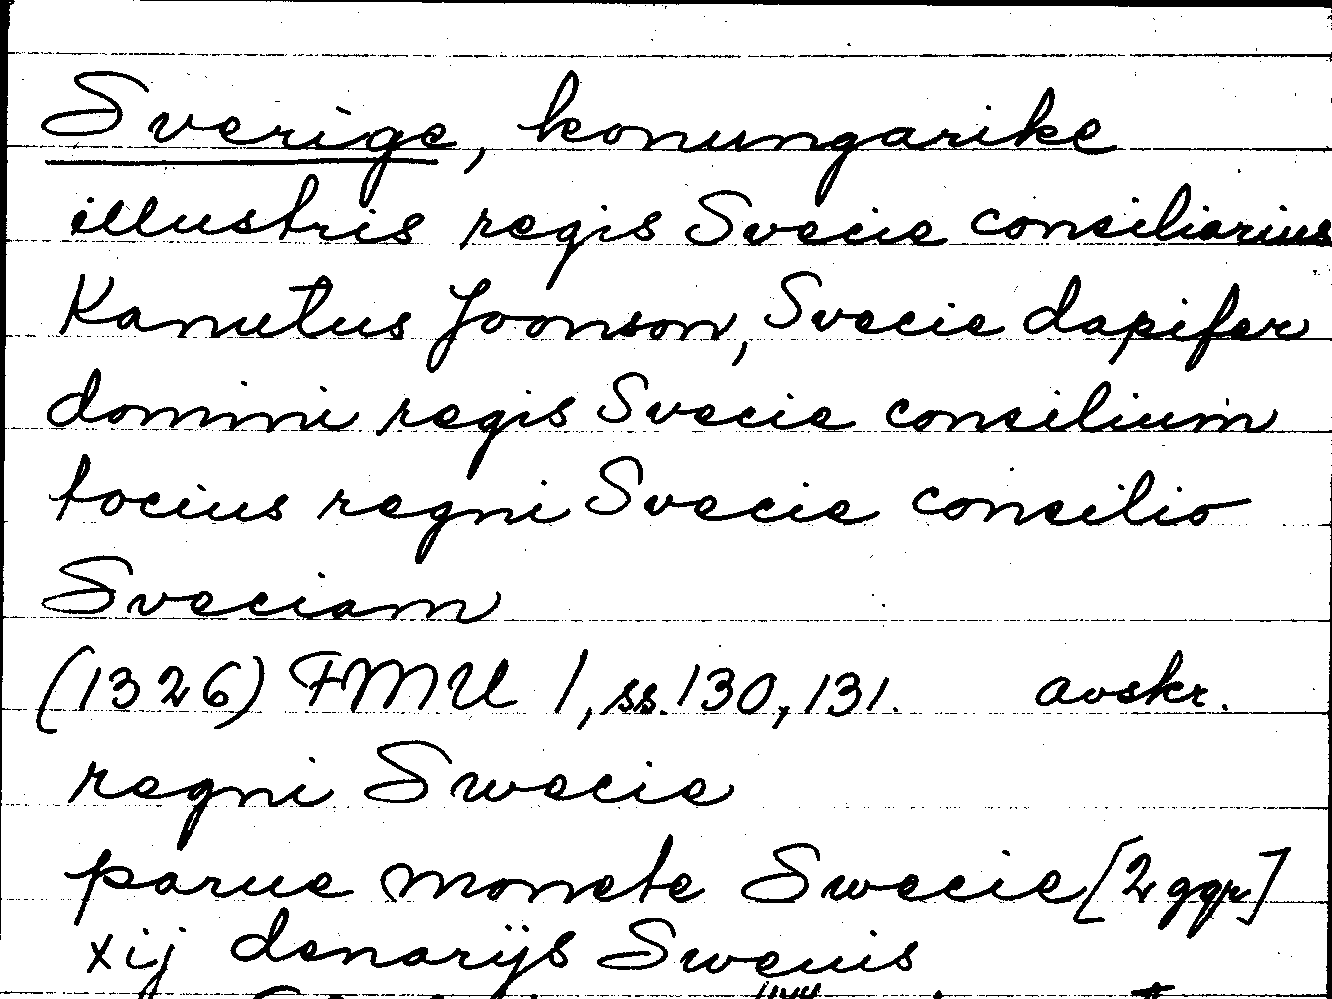 Sverige, konungarike
illustris regis Svecie consiliarius
Kanutus Joonson, Svecie dapifer
domini regis Svecie consilium
tocius regni Svecie consilio
Sveciam
(1326) FMU 1, ss. 130, 131. avskr.
regni Swecie
parue monete Swecie [2 ggr]
xij denarijs Sweuis